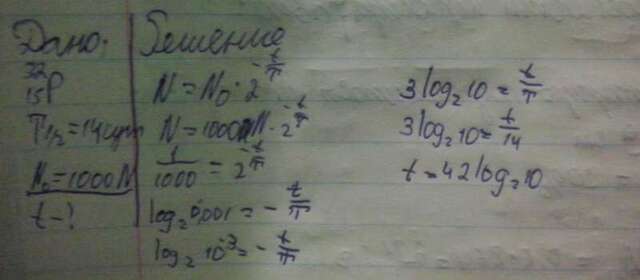 Дано:
³²₁₅P
T₁/₂ = 14 сут
N₀ = 1000 N
t - ?
Решение
N = N₀ · 2^(-t/T)
N = 1000 N · 2^(-t/T)
1/1000 = 2^(-t/T)
log₂ 0,001 = - t/T
log₂ 10⁻³ = - t/T
3 log₂ 10 = t/T
3 log₂ 10 = t/14
t = 42 log₂ 10